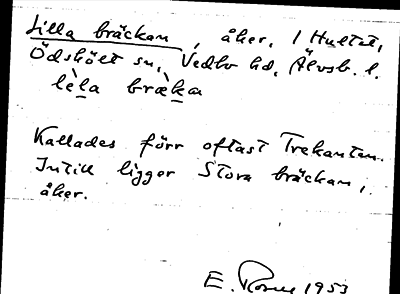 Lilla bräckan, åker. 1 Hultet,
Ödskölt sn, Vedbo hd, Älvsb. l.
lèla bræ̀ka
Kallades förr oftast Trekanten.
Intill ligger Stora bräckan,
åker.
E. 1953